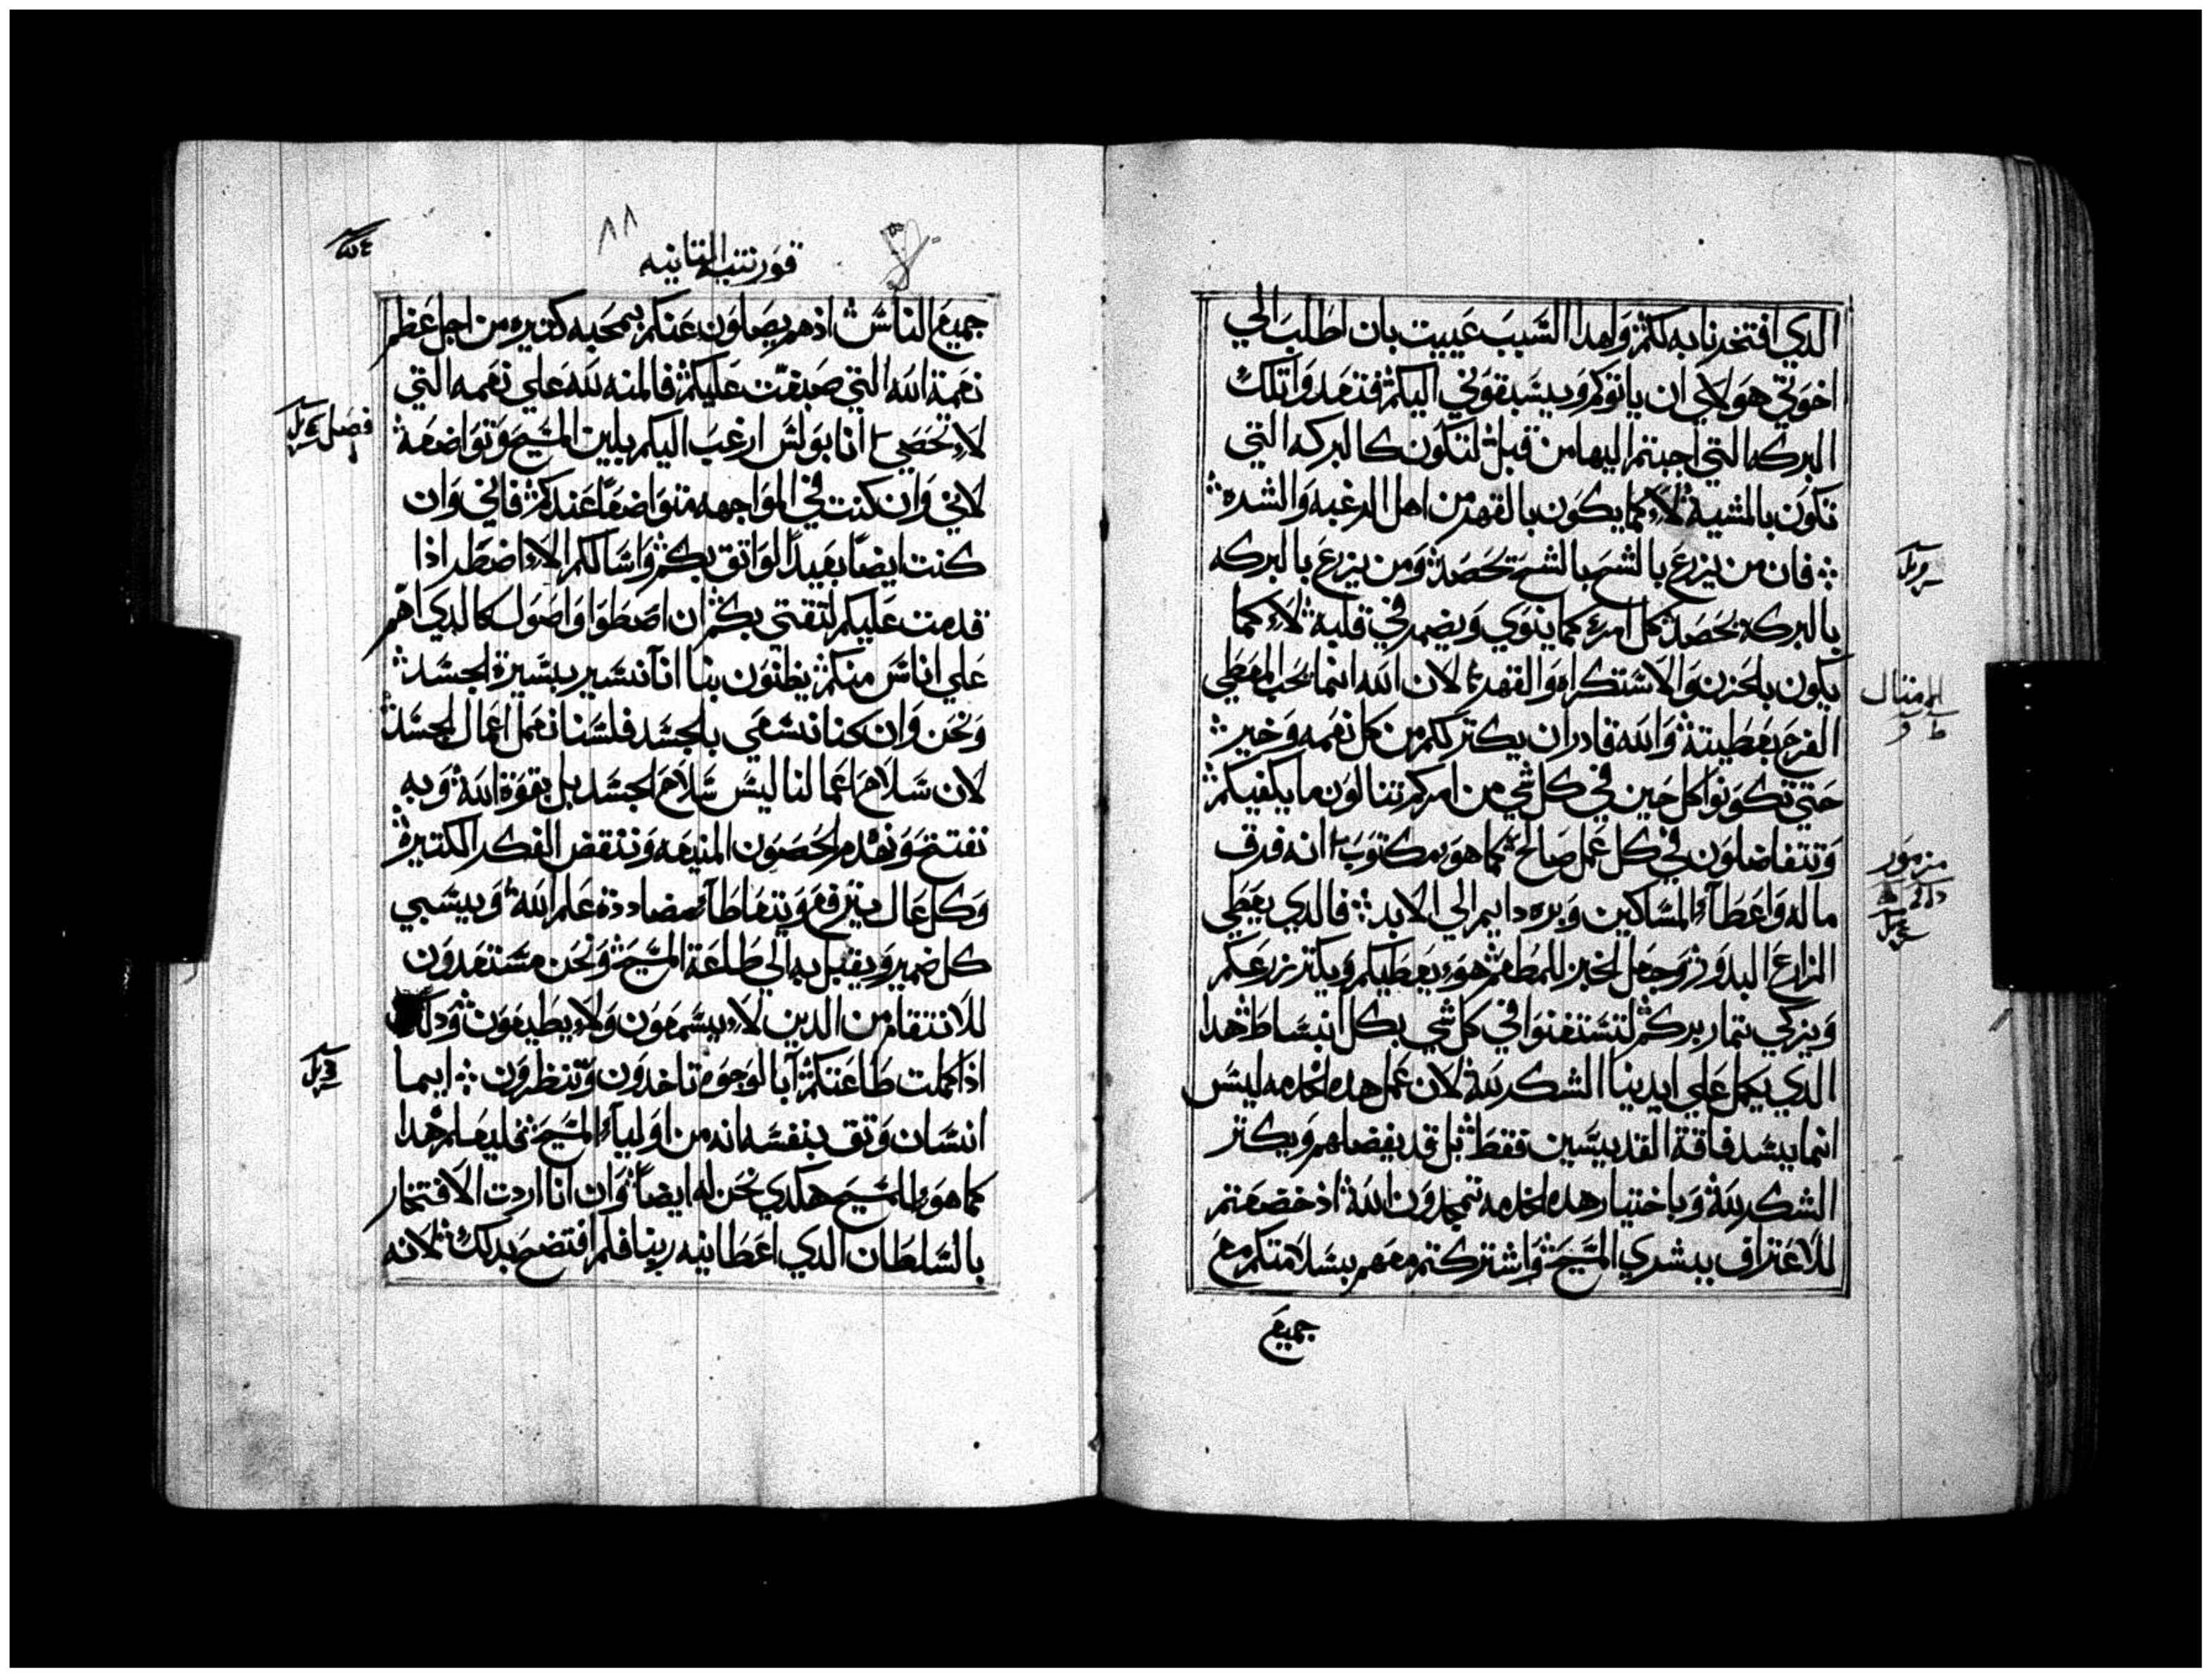 الدي افتخرنا به لكم ولهدا السبب عييت بان اطلب الي
اخوتي هولاي ان ياتوكم ويسبقوني اليكم فتعدوا تلك
البركه التي اجبتم اليها من قبل لتكون كالبركه التي
تكون بالمشية لا كما يكون بالقهر من اهل الرغبه والشره
فان من يزرع بالشح بالشح يحصد ومن يزرع بالبركه
بالبركه يحصد كل امرء كما ينوي ويضمر في قلبه لا كما
يكون بلحزن والاستكراه والقهر لان الله انما يحب المعطي
الفرح بعطيته والله قادر ان يكتر لكم من كل نعمه وخير
حتي تكونوا كل حين في كل شي من امركم تنالون ما يكفيكم
وتتفاضلون في كل عمل صالح كما هو مكتوب انه فرق
ماله واعطا المساكين وبره دايم الي الابد فالدي يعطي
الزارع البدور وجعل الخبز للمطعم هو يعطيكم ويكتر زرعكم
ويزكي تمار بركم لتستغنوا في كل شي بكل انبساط هدا
الدي يكمل علي ايدينا الشكر لله لان عمل هده الخدمه ليس
انما يسد فاقة القديسين فقط بل قد يفضلهم ويكتر
الشكر لله وباختيار هده الخدمه تمجدون الله اد خضعتم
للاعتراف ببشري المسيح واشتركتم معهم بسلامتكم مع
جميع
المتال
مزمور
قورنتيه التانيه
٨٨
جميع الناس اذ هم يصلون عنكم بمحبه كتيره من اجل عظم
نعمة الله التي صبغت عليكم فالمنه لله علي نعمه التي
لا تحصي انا بولس ارغب اليكم بلين المسيح وتواضعه
لاني وان كنت في المواجهه متواضعا عندكم فاني وان
كنت ايضا بعيدا لواتق بكم واسالكم الا اضطر اذا
قدمت عليكم لتقتي بكم ان اصطوا واصول كالدي اهم
علي اناس منكم يظنون بنا اننا نسير بسيرة الجسد
ونحن وان كنا نسعي بلجسد فلسنا نعمل اعمال الجسد
لان سلاح اعمالنا ليس سلاح الجسد بل بقوة الله وبه
نفتتح ونهدم الحصون المنيعه وننقض الفكر الكتيرة
وكل عال يترفع ويتعاطا مضاددة علم الله ويسبي
كل ضمير ويقبل به الي طاعة المسيح ونحن مستعدون
للانتقام من الدين لا يسمعون ولا يطيعون ودلك
اذا كملت طاعتكم آبا لوجوه تاخدون وتنظرون ايما
انسان وتق بنفسه انه من اوليآ المسيح فليعلم هدا
كما هو للمسيح هكدي نحن له ايضا وان انا اردت الافتخار
بالسلطان الدي اعطانيه ربنا فلم افتضح بدلك لانه
فصل